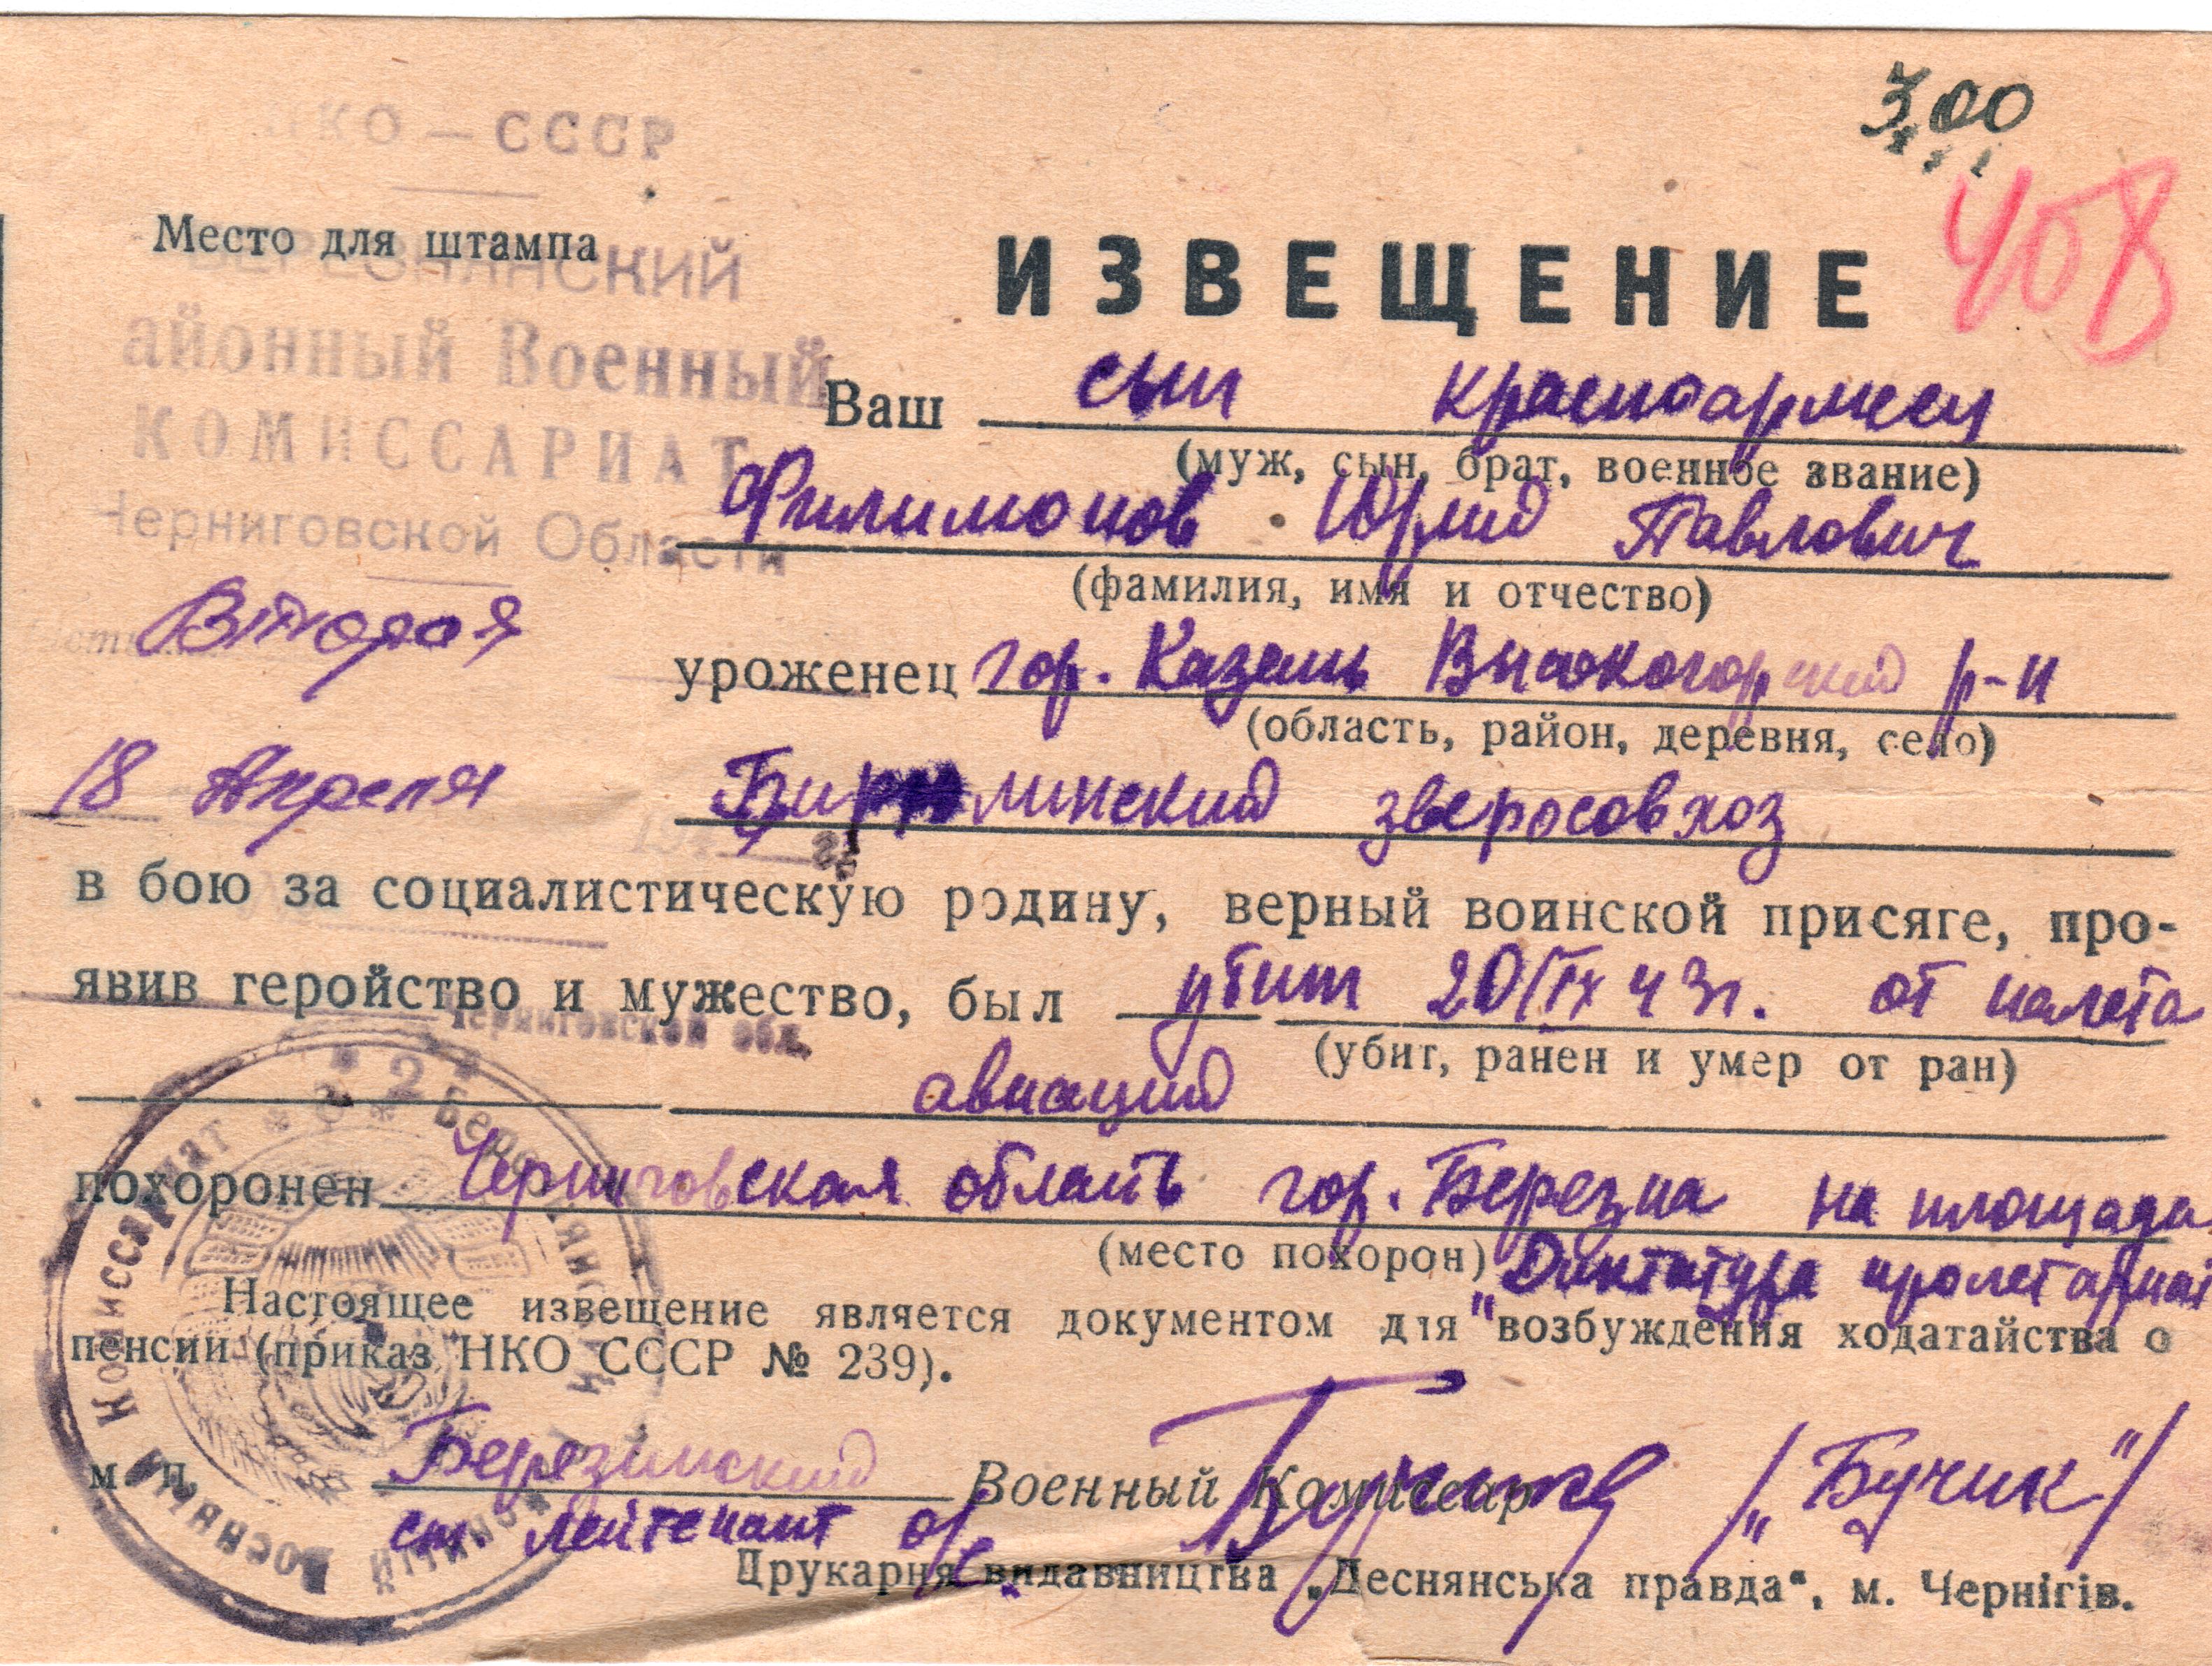 НКО — СССР
3,00
408
Место для штампа
БЕРЕЗНЯНСКИЙ
ИЗВЕЩЕНИЕ
айонный Военный
КОМИССАРИАТ
Черниговской Области
Ваш сын красноармеец
(муж, сын, брат, военное звание)
Филимонов Юрий Павлович
(фамилия, имя и отчество)
Вторая
уроженец гор. Казань Высокогорский р-н
(область, район, деревня, село)
18 Апреля
Бирюлинский зверосовхоз
в бою за социалистическую родину, верный воинской присяге, про-
явив геройство и мужество, был убит 20/IX 43г. от налета
Черниговской обл.
(убит, ранен и умер от ран)
авиаций
похоронен Черниговская область гор. Березна на площада
(место похорон) Диктатура пролетариат
Настоящее извещение является документом для " возбуждения ходатайства о
пенсии (приказ НКО СССР № 239).
Военный Комиссариат
м п. Березинский Военный Комиссар /"Бучик"/
ст лейтенант а/с.
Друкарня видавництва „Деснянська правда“, м. Чернігів.